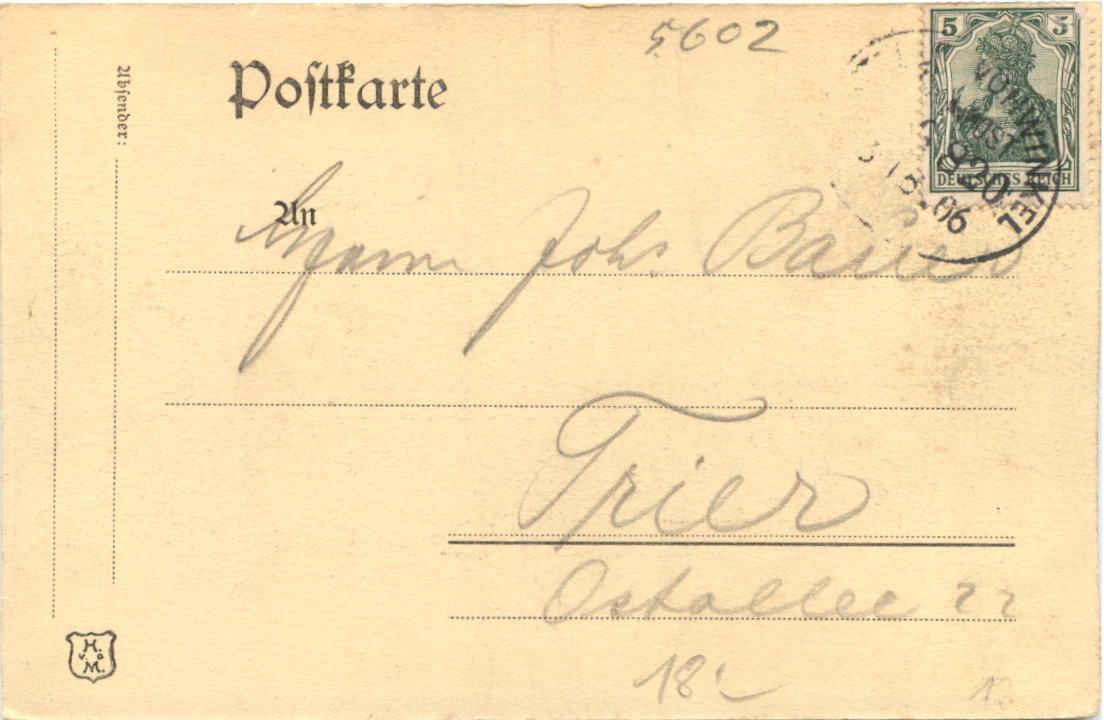 5602
5 5
Postkarte
Absender:
VOHWINKEL
DEUTSCHES REICH
820
3 18.06
An
Herrn Johs Bauer
Trier
Ostallee 22
H.
v. a
M.
18.-